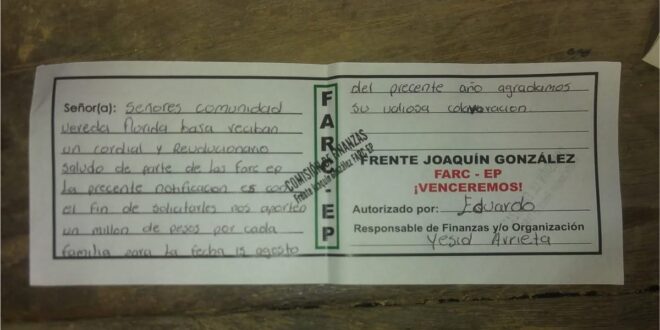 Señor(a): Señores comunidad
vereda florida baja reciban
un cordial y Revolucionario
saludo de parte de las farc ep
la presente notificacion es con
el fin de solicitarles nos aporten
un millon de pesos por cada
familia para la fecha 15 agosto
FARC-EP
COMISIÓN DE FINANZAS
Frente Joaquín González FARC EP
del precente año agradamos
su valiosa colavoracion
FRENTE JOAQUÍN GONZÁLEZ
FARC - EP
¡VENCEREMOS!
Autorizado por: Eduardo
Responsable de Finanzas y/o Organización
Yesid Arrieta